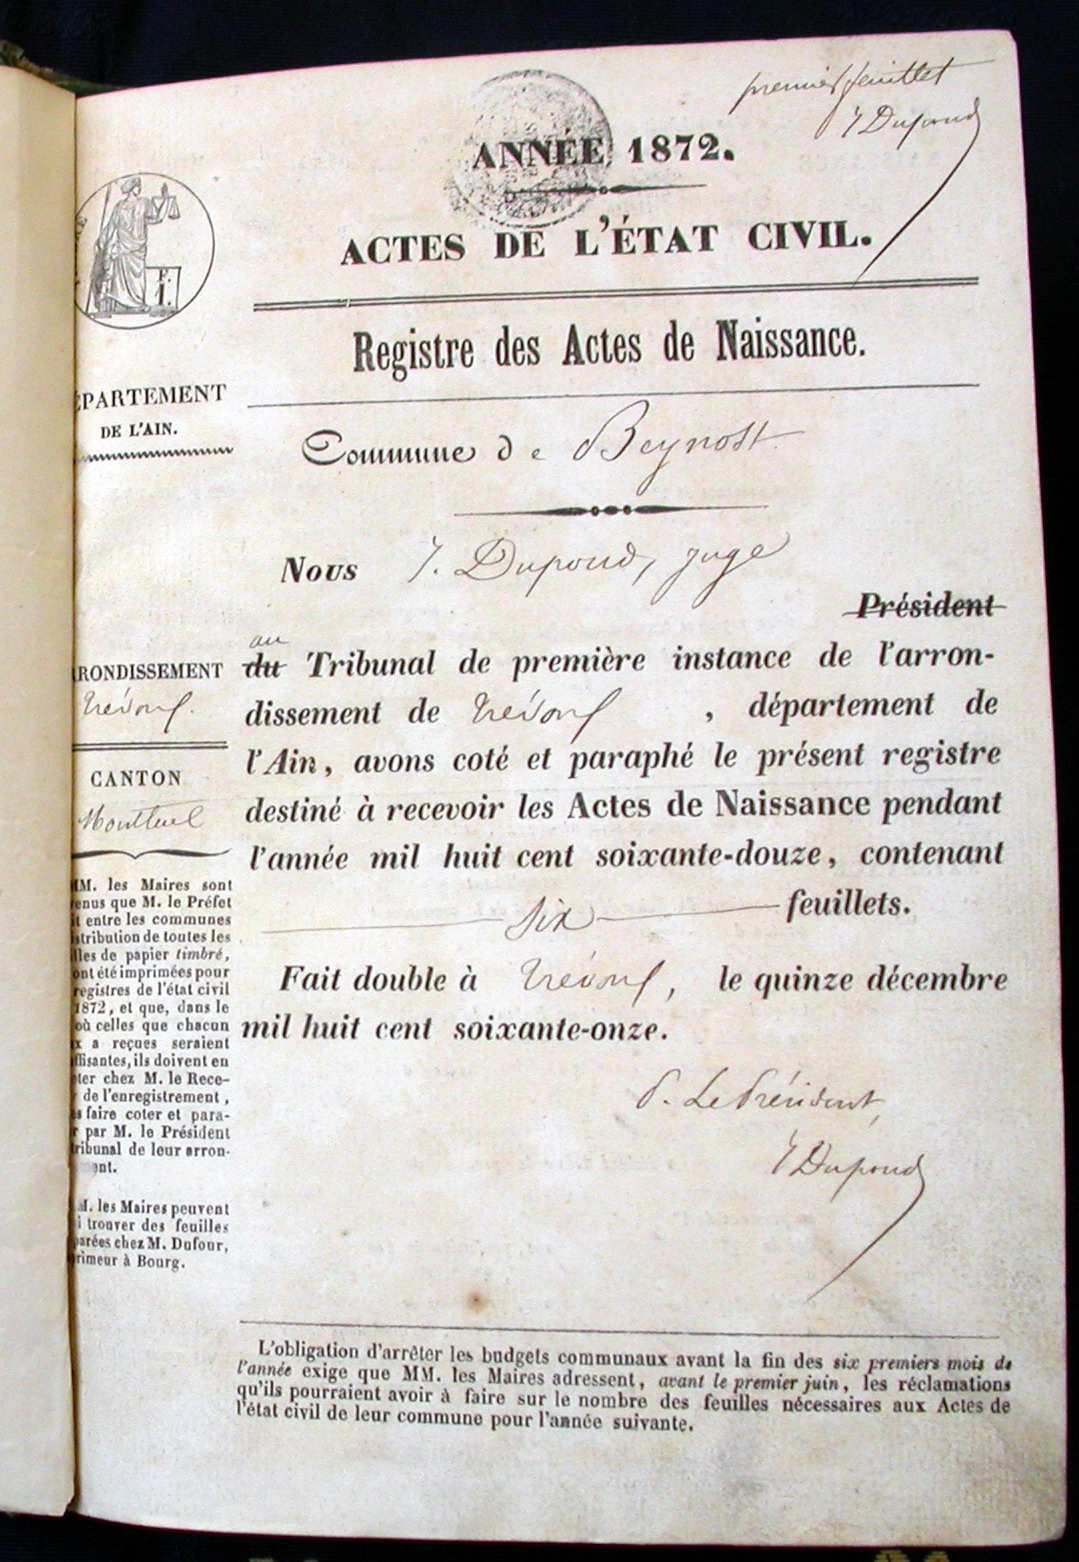 premier feuillet
J Dupond
ANNÉE 1872.
ACTES DE L'ÉTAT CIVIL.
Registre des Actes de Naissance.
Commune de Beynost
Nous J. Dupond, juge
Président
au
du Tribunal de première instance de l'arron-
dissement de Trévoux, département de
l'Ain, avons coté et paraphé le présent registre
destiné à recevoir les Actes de Naissance pendant
l'année mil huit cent soixante-douze, contenant
six feuillets.
Fait double à Trévoux, le quinze décembre
mil huit cent soixante-onze.
P. Le Président,
J Dupond
EPARTEMENT
DE L'AIN.
RONDISSEMENT
Trévoux.
CANTON
Montluel
MM. les Maires sont
enus que M. le Préfet
t entre les communes
stribution de toutes les
lles de papier timbré,
ont été imprimées pour
registres de l'état civil
1872, et que, dans le
où celles que chacun
x a reçues seraient
ffisantes, ils doivent en
ter chez M. le Rece-
de l'enregistrement,
s faire coter et para-
r par M. le Président
ribunal de leur arron-
ent.
M. les Maires peuvent
i trouver des feuilles
parées chez M. Dufour,
rimeur à Bourg.
L'obligation d'arrêter les budgets communaux avant la fin des six premiers mois de
l'année exige que MM. les Maires adressent, avant le premier juin, les réclamations
qu'ils pourraient avoir à faire sur le nombre des feuilles nécessaires aux Actes de
l'état civil de leur commune pour l'année suivante.